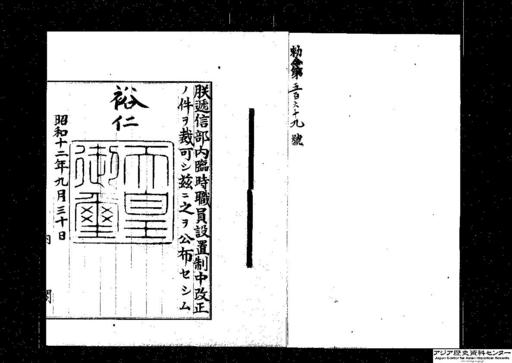 勅令第五百六十九號
朕遞信部内臨時職員設置制中改正
ノ件ヲ裁可シ茲ニ之ヲ公布セシム
裕仁
天皇御璽
昭和十二年九月三十日
内閣
アジア歴史資料センター
Japan Center for Asian Historical Records